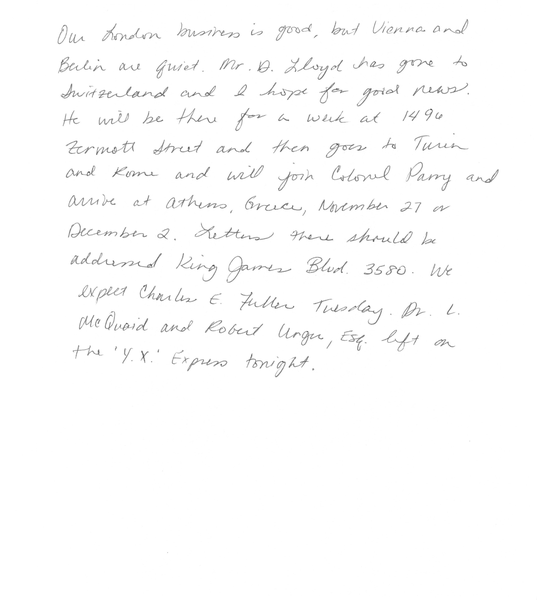 Our London business is good, but Vienna and
Berlin are quiet. Mr. D. Lloyd has gone to
Switzerland and I hope for good news.
He will be there for a week at 1496
Zermott Street and then goes to Turin
and Rome and will join Colonel Parry and
arrive at Athens, Greece, November 27 or
December 2. Letters there should be
addressed King James Blvd. 3580. We
expect Charles E. Fuller Tuesday. Dr. L.
McQuaid and Robert Unger, Esq. left on
the 'Y.X.' Express tonight.